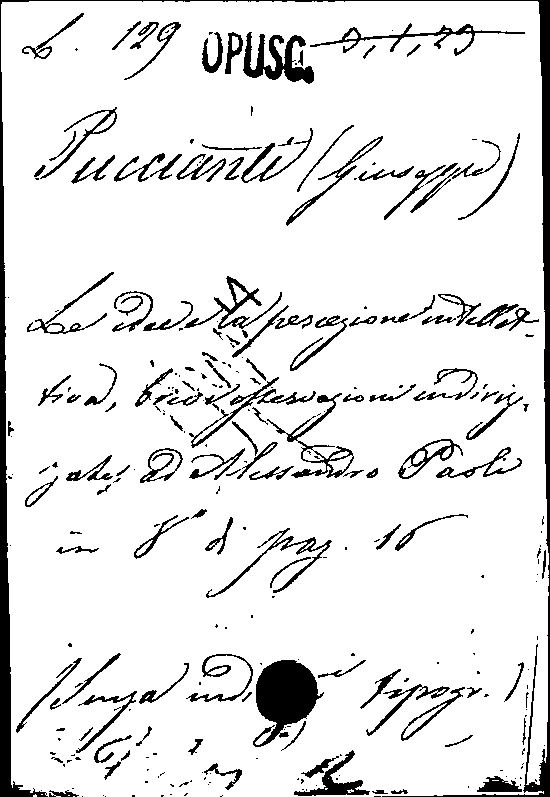 L. 129 OPUSC. 9, 1, 29
Puccianti (Giuseppe)
Le idee e la percezione intellet-
tiva, brevi osservazioni indiriz-
zate ad Alessandro Paoli
in 8° di pag. 16
(Senza indi i tipogr.)